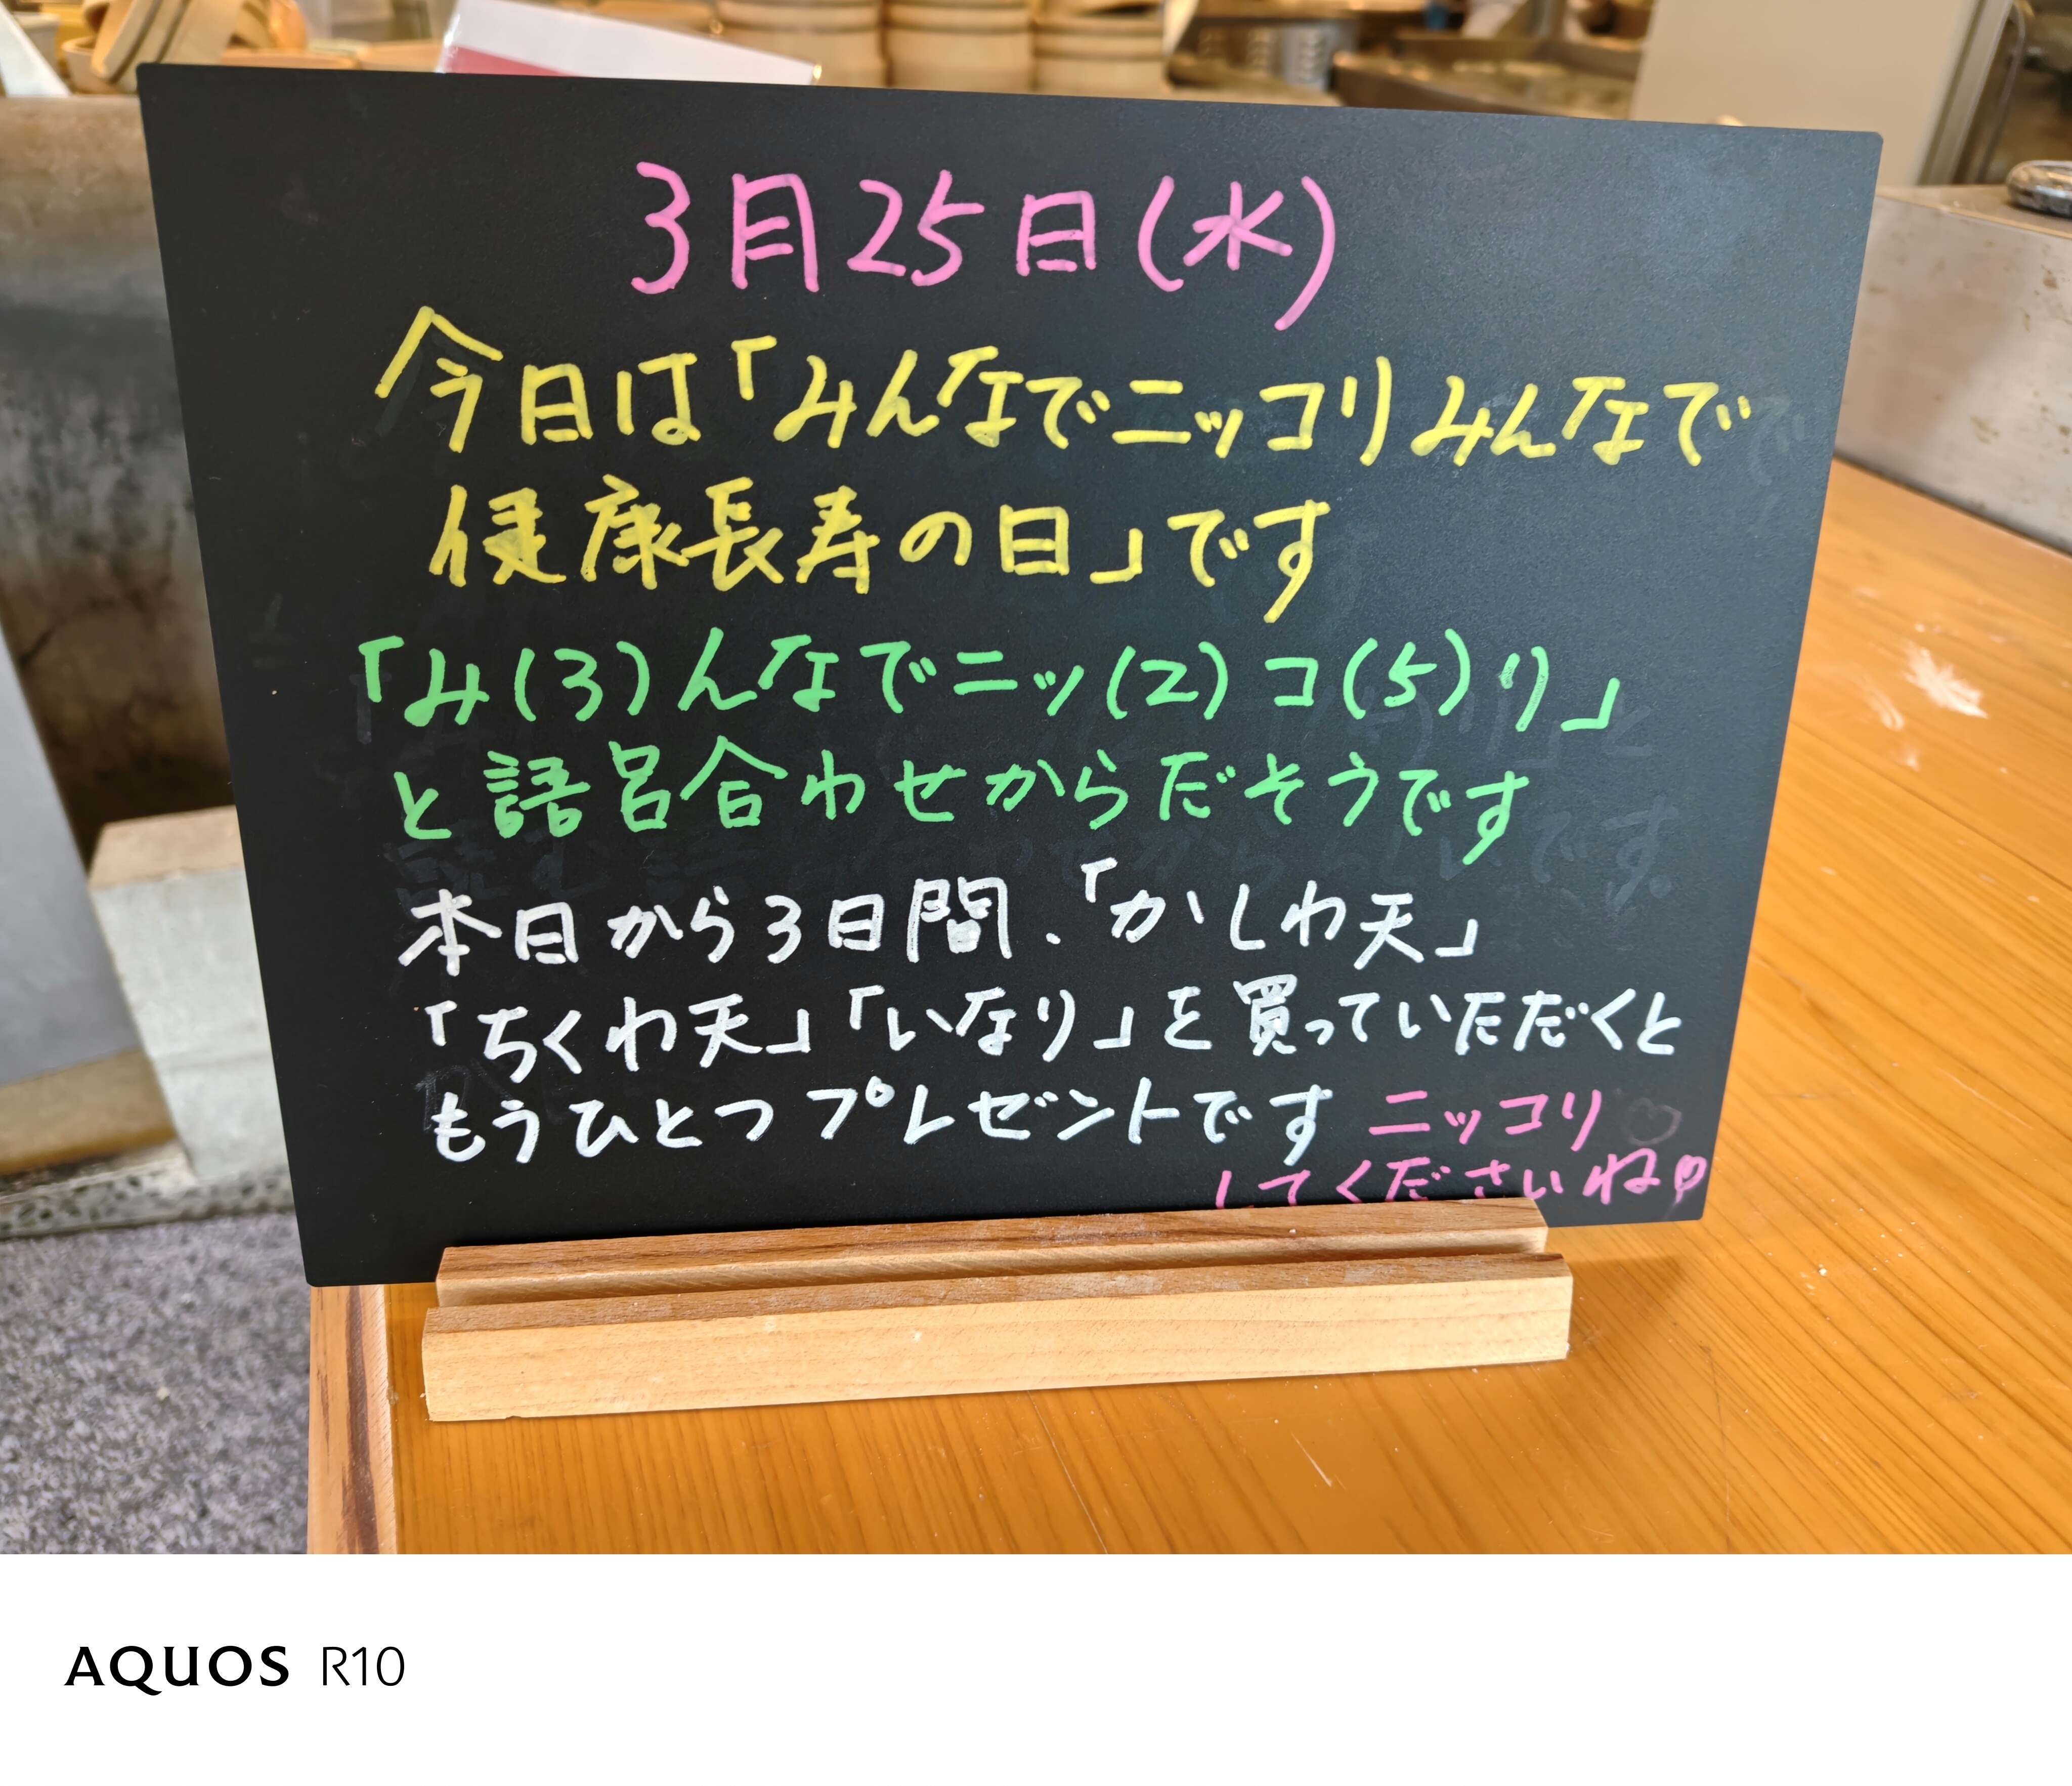 3月25日(水)
今日は「みんなでニッコリみんなで
健康長寿の日」です
「み(3)んなでニッ(2)コ(5)り」
と語呂合わせからだそうです
本日から3日間、「かしわ天」
「ちくわ天」「いなり」を買っていただくと
もうひとつプレゼントです ニッコリ
してくださいね
AQUOS R10